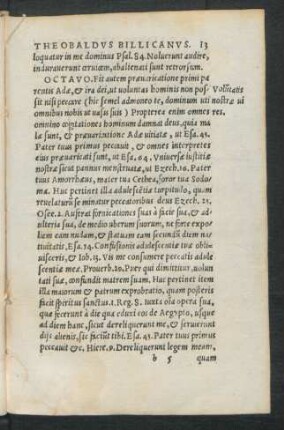 THEOBALDVS BILLICANVS. 13
loquatur in me dominus Psal. 84. Noluerunt audire,
indurauerunt ceruicem, abalienati sunt retrorsum.
OCTAVO. Fit autem præuaricatione primi pa
rentis Adæ, & ira dei, ut voluntas hominis non pos Voluntatis
sit nisi peccare (hic semel admoneo te, dominum uti nostra ui
omnibus nobis ut uasis suis) Propterea enim omnes res
omnino cogitationes hominum damnat deus, quia ma
læ sunt, & præuaricatione Adæ uitiatæ, ut Esa. 43.
Pater tuus primus peccauit, & omnes interpretes
eius præuaricati sunt, ut Esa. 64. Vniuersæ iustitiæ
nostræ sicut pannus menstruatæ, ut Ezech. 16. Pater
tuus Amorrhæus, mater tua Cethea, soror tua Sodo=
ma. Huc pertinet illa adulescentiæ turpitudo, quam
reuelaturū se minatur peccatoribus deus Ezech. 23.
Osee. 2. Auferat fornicationes suas à facie sua, & ad=
ulteria sua, de medio uberum suorum, ne forte expo
liem eam nudam, & statuam eam secundū diem na=
tiuitatis, Esa. 54. Confusionis adolescentiæ tuæ obli=
uisceris, & Iob. 13. Vis me consumere peccatis adole
scentiæ meæ. Prouerb. 29. Puer qui dimittitur uolun
tati suæ, confundit matrem suam. Huc pertinet item
illa maiorum & patrum exprobratio, quam posteris
facit spiritus sanctus. 1. Reg. 8. Iuxta oīa opera sua,
quæ fecerunt à die qua eduxi eos de Aegypto, usque
ad diem hanc, sicut dereliquerunt me, & seruierunt
dijs alienis, sic faciunt tibi. Esa. 43. Pater tuus primus
peccauit &c. Hiere. 9. Dereliquerunt legem meam,
b 5 quam